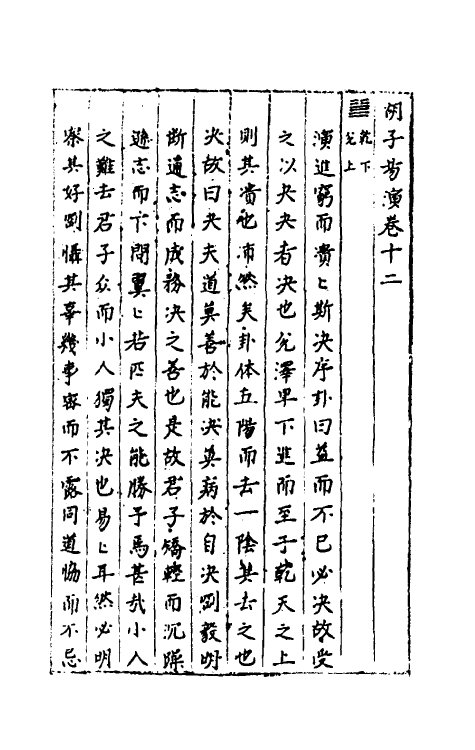 胡子易演卷十二
䷪乾下
兌上
演進窮而潰〻斯決序卦曰益而不已必決故受
之以夬夬者決也兌澤畢下進而至于乾天之上
則其潰也沛然矣卦体五陽而去一陰其去之也
決故曰夬夫道莫善於能決莫病於自決剛毅明
断通志而成務決之善也是故君子矯輕而沉躁
遜志而下問翼〻若匹夫之能勝予焉甚哉小人
之難去君子众而小人獨其決也易〻耳然必明
察其好剛懾其辜幾事密而不露同道恊而不忌